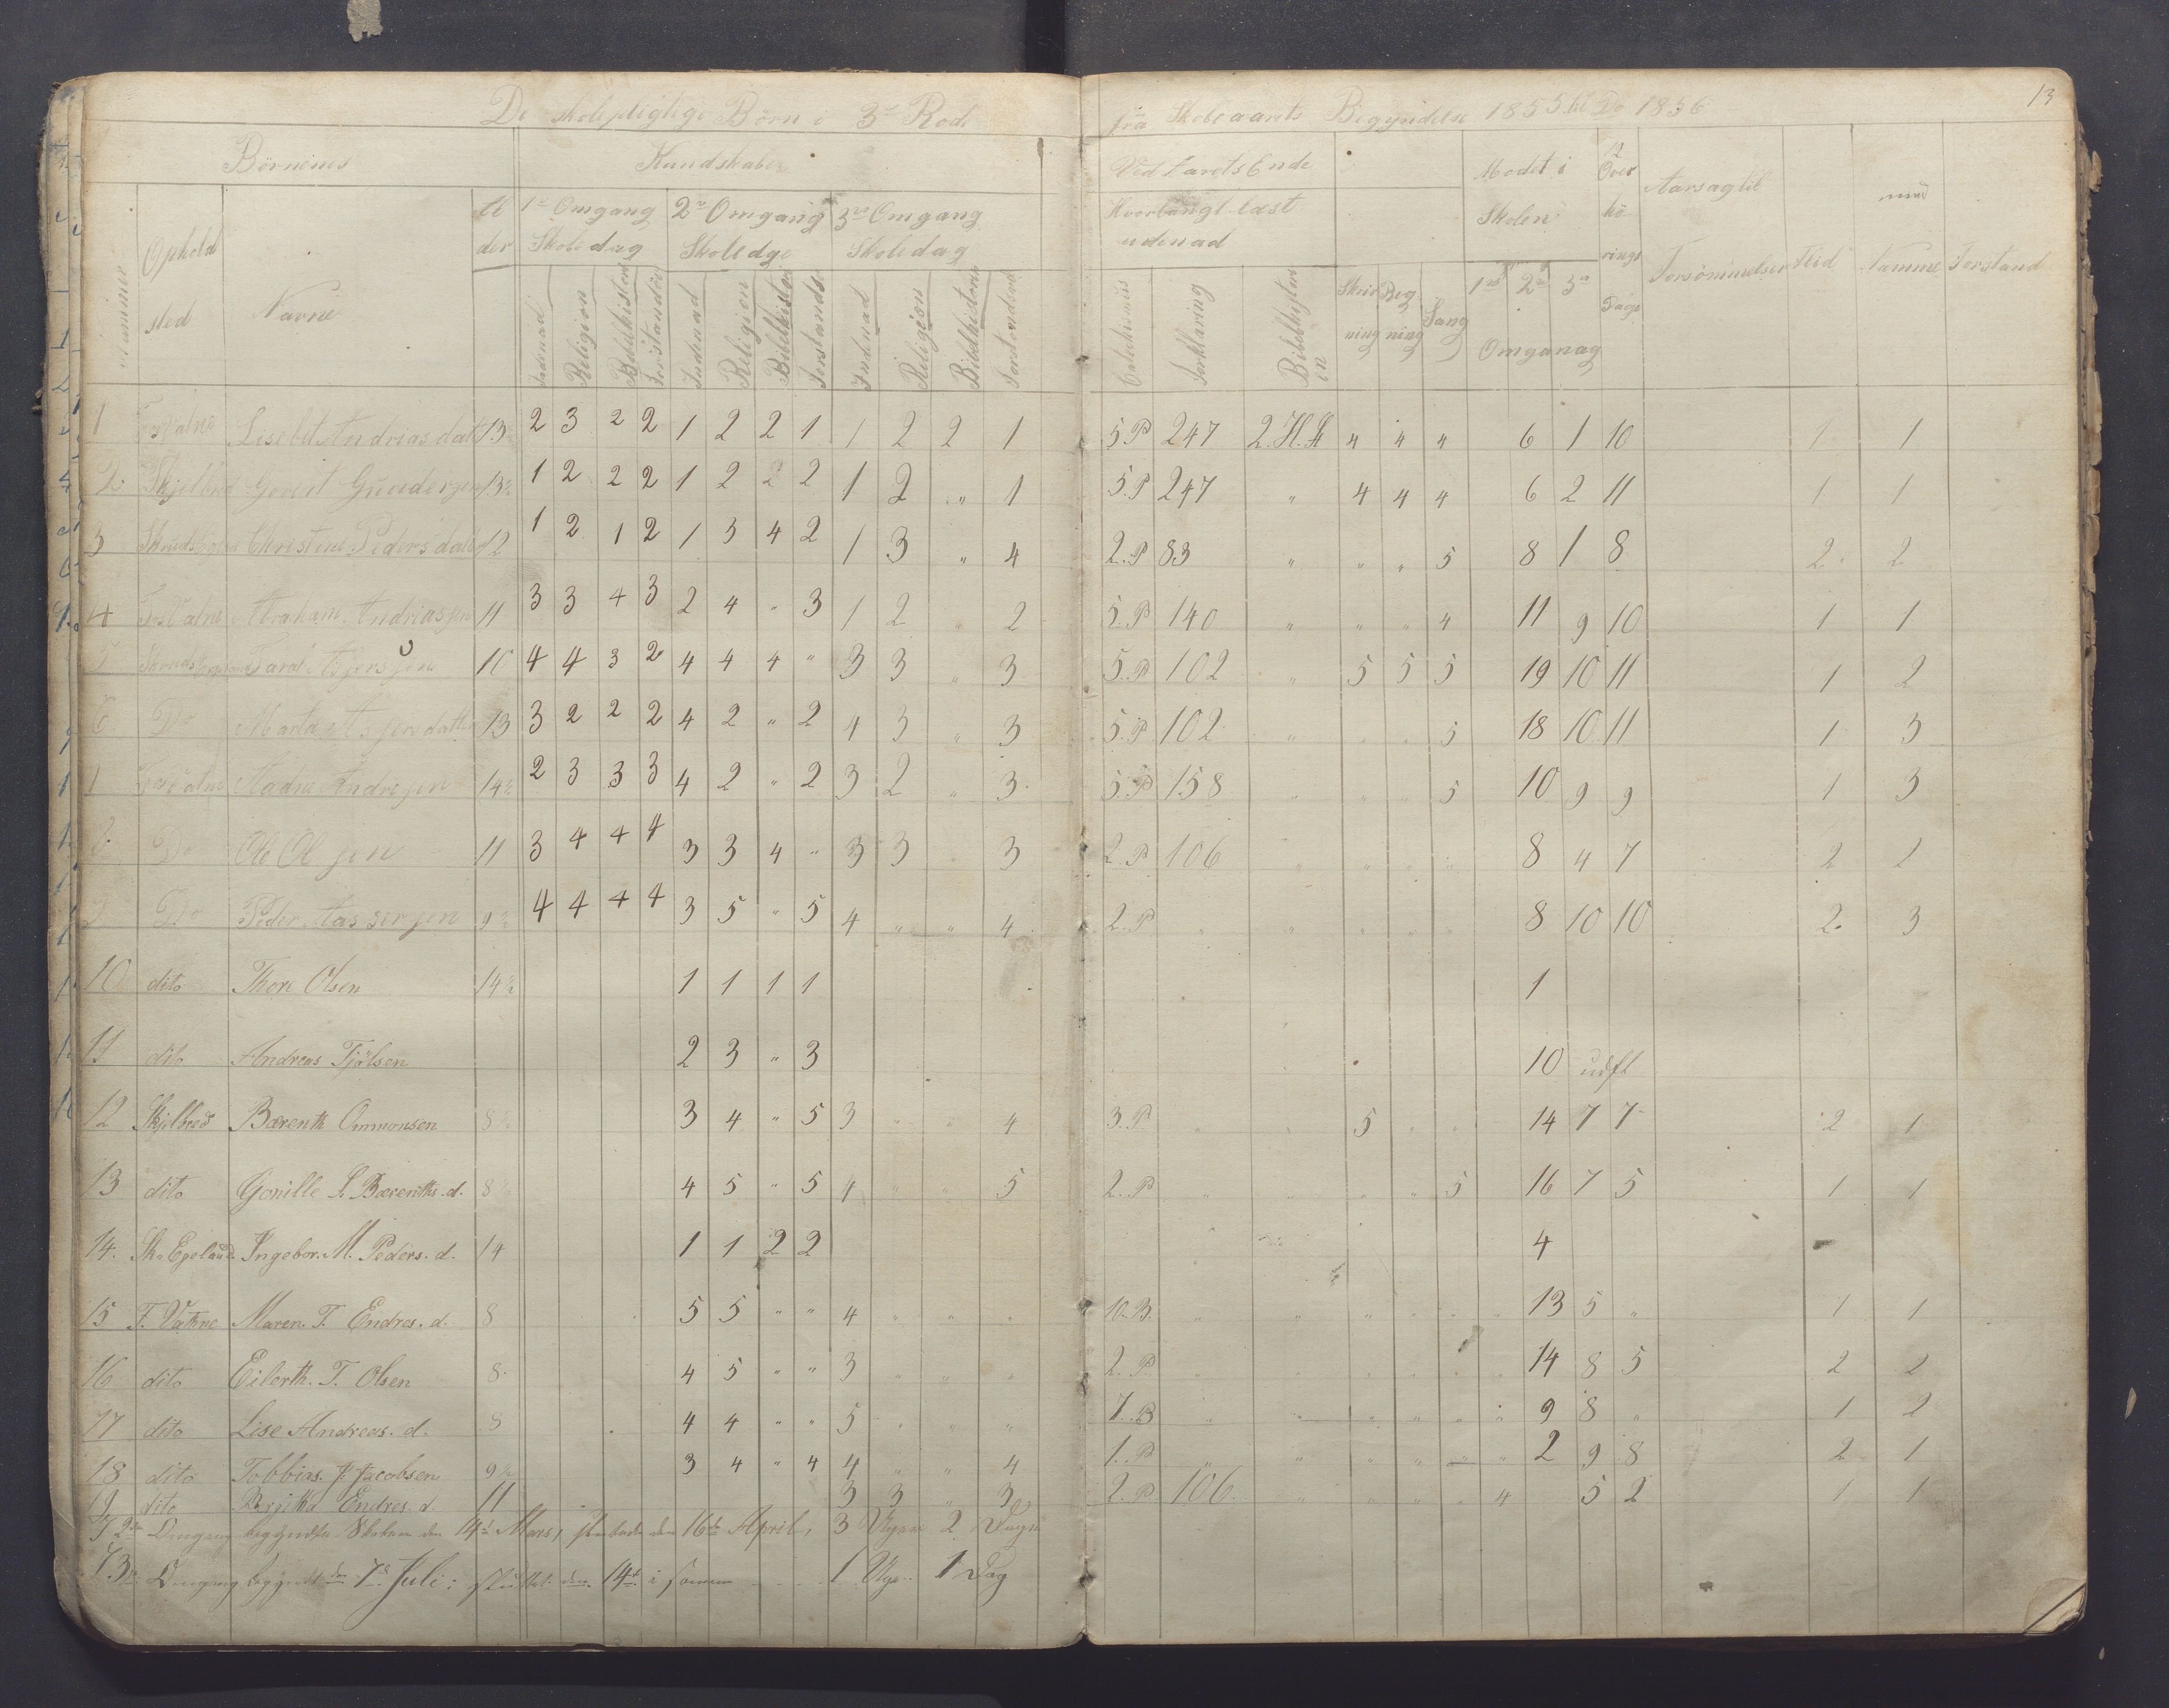 De skolepligtige Börn i 3die Rode fra Skoleaarets Begyndelse 1855 til Do 1856
13
Börnenes Kundskaber Ved Aarets Ende Mödet i Over
Nummer Opholdsted Navne Alder
1ste Omgang Skoledag 2den Omgang Skoledge 3die Omgang Skoledag
Hvorlangt læst udenad Skolen hörings Dage Aarsag til Forsömmelser Flid Samme Forstand
Indenad Religion Bibelhistorie Forstandse Indenad Religion Bibelhistori Forstands Indenad Religion Bibelhistorie Forstandsö
Catechismus Forklaring Bibelhistorien Skrivning Regning Sang 1ste 2den 3die Omgang
1 Lisebet Andrias dat 13 2 3 2 2 1 2 2 1 1 2 2 1 5.P 247 2.H. " " " 6 1 10 1 1
2 Skjelbred Govert Gundersen 13½ 1 2 2 2 1 2 2 2 1 2 " 1 5.P 247 " 4 4 4 6 2 11 1 1
3 Christine Pedersdatter 12 1 2 1 2 1 3 4 2 1 3 " 4 2.P 83 " " " 5 8 1 8 2 2
4 Abraham Andriassen 11 3 3 4 3 2 4 " 3 1 2 " 2 5.P 140 " " " 4 11 9 10 1 1
5 Taral 10 4 4 3 2 4 4 4 " 3 3 " 3 5.P 102 " 5 5 5 19 10 11 1 2
6 Do Marta 13 3 2 2 2 4 2 " 2 4 3 " 3 5.P 102 " " " 5 18 10 11 1 3
14½ 2 3 3 3 4 2 " 2 3 2 " 3 5.P 158 " " " 5 10 9 9 1 3
Do Ole Olsen 11 3 4 4 4 3 3 4 " 3 3 3 2.P 106 " " " " 8 4 7 2 1
Do Peder Assersen 9½ 4 4 4 4 3 5 " 5 4 " " 4 2.P " " " " 8 10 10 2 3
10 dito Thore Olsen 14½ 1 1 1 1 1
11 dito Andreas Tjölsen 2 3 " 3 10 udfl
12 Skjelbred Bærenth Ommonsen 8½ 3 4 " 5 3 " " 4 3.P 5 14 7 7 2 1
13 dito Gonille S. Bærenths.d. 8½ 4 5 " 5 4 " " 5 2.P " " " " 5 16 7 5 1 1
14. Sk. Egeland Ingebor. M. Peders. d. 14 1 1 2 2 4
15 F. Vatne Maren. T. Endres. d. 8 5 5 " " 4 " " " 10.B. " " " " " " 13 5 " 1 1
16 dito Eilerth. T. Olsen 8 4 5 " " 3 " " " 2.P 14 8 5 2 2
17 dito Lise Andreas. d. 8 4 4 " " 5 " " " 7.B " " " " " " 9 8 " 1 2
18 dito Tobbias. J. Jacobsen 9½ 3 4 " 4 4 " " 4 1.P " " " " " " 2 9 8 2 1
19. dito Birjitha Endres. d. 11 3 3 " 3 2.P. 106 " " " " 4 5 2 1 1
I 2den Omgang begyndte Skolen den 14de Mars, sluttede den 16de April, 3 Uger 2 Dage
I 3die Omgang begyndt den 7de Juli: sluttet den 14de i samme 1 Uge 1 Dag